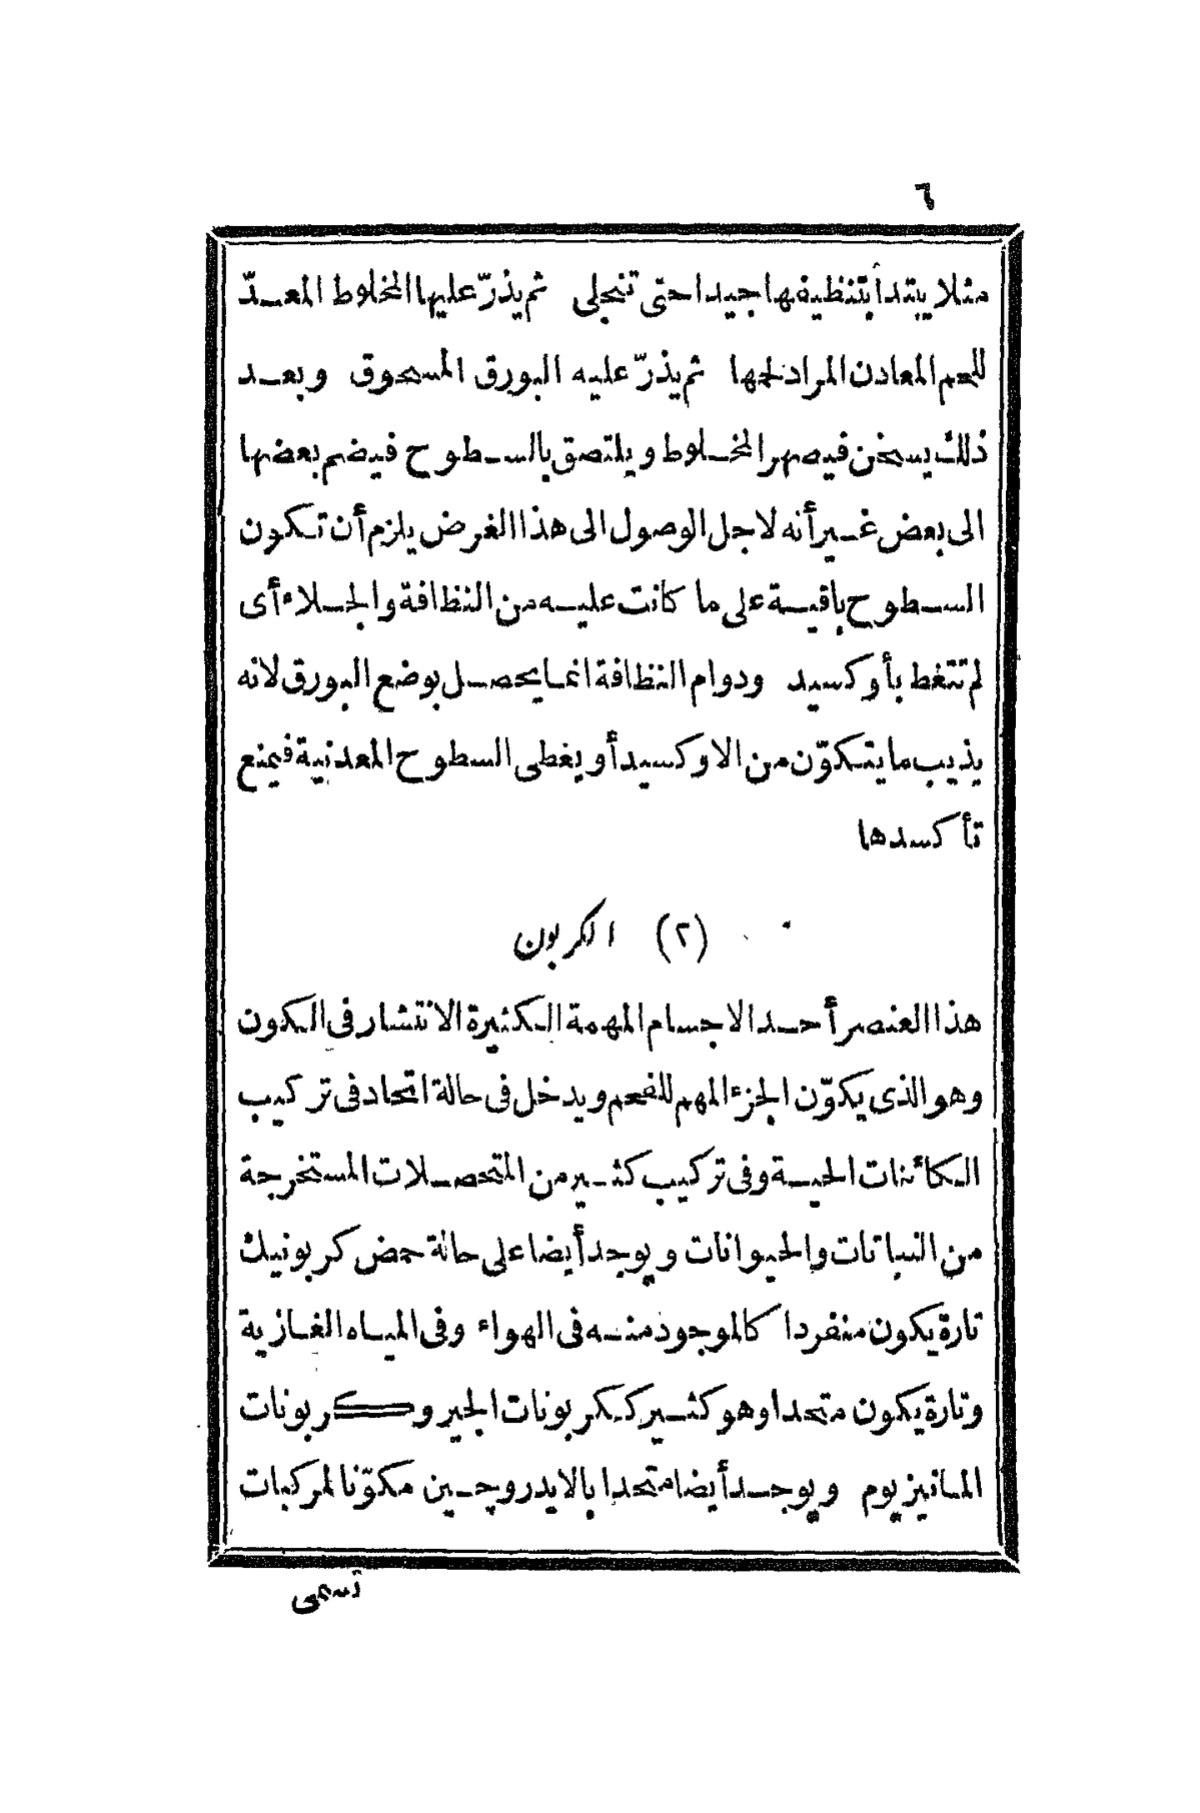 ٦
مثلا يبتدأ بتنظيفها جيدا حتى تنجلى ثم يذرّ عليها المخلوط المعدّ
للحم المعادن المراد لحمها ثم يذرّ عليه البورق المسحوق وبعد
ذلك يسخن فيصهر المخلوط ويلتصق بالسطوح فيضم بعضها
الى بعض غير أنه لاجل الوصول الى هذا الغرض يلزم أن تكون
السطوح باقية على ما كانت عليه من النظافة والجلاء أى
لم تتغط بأوكسيد ودوام النظافة انما يحصل بوضع البورق لانه
يذيب ما يتكوّن من الاوكسيد أو يغطى السطوح المعدنية فيمنع
تأكسدها
(٢) الكربون
هذا العنصر أحد الاجسام المهمة الكثيرة الانتشار فى الكون
وهو الذى يكوّن الجزء المهم للفحم ويدخل فى حالة اتحاد فى تركيب
الكائنات الحية وفى تركيب كثير من المتحصلات المستخرجة
من النباتات والحيوانات ويوجد أيضا على حالة حمض كربونيك
تارة يكون منفردا كالموجود منه فى الهواء وفى المياه الغازية
وتارة يكون متحدا وهو كثير ككربونات الجير وكربونات
المانيزيوم ويوجد أيضا متحدا بالايدروچين مكوّنا لمركبات
تسمى